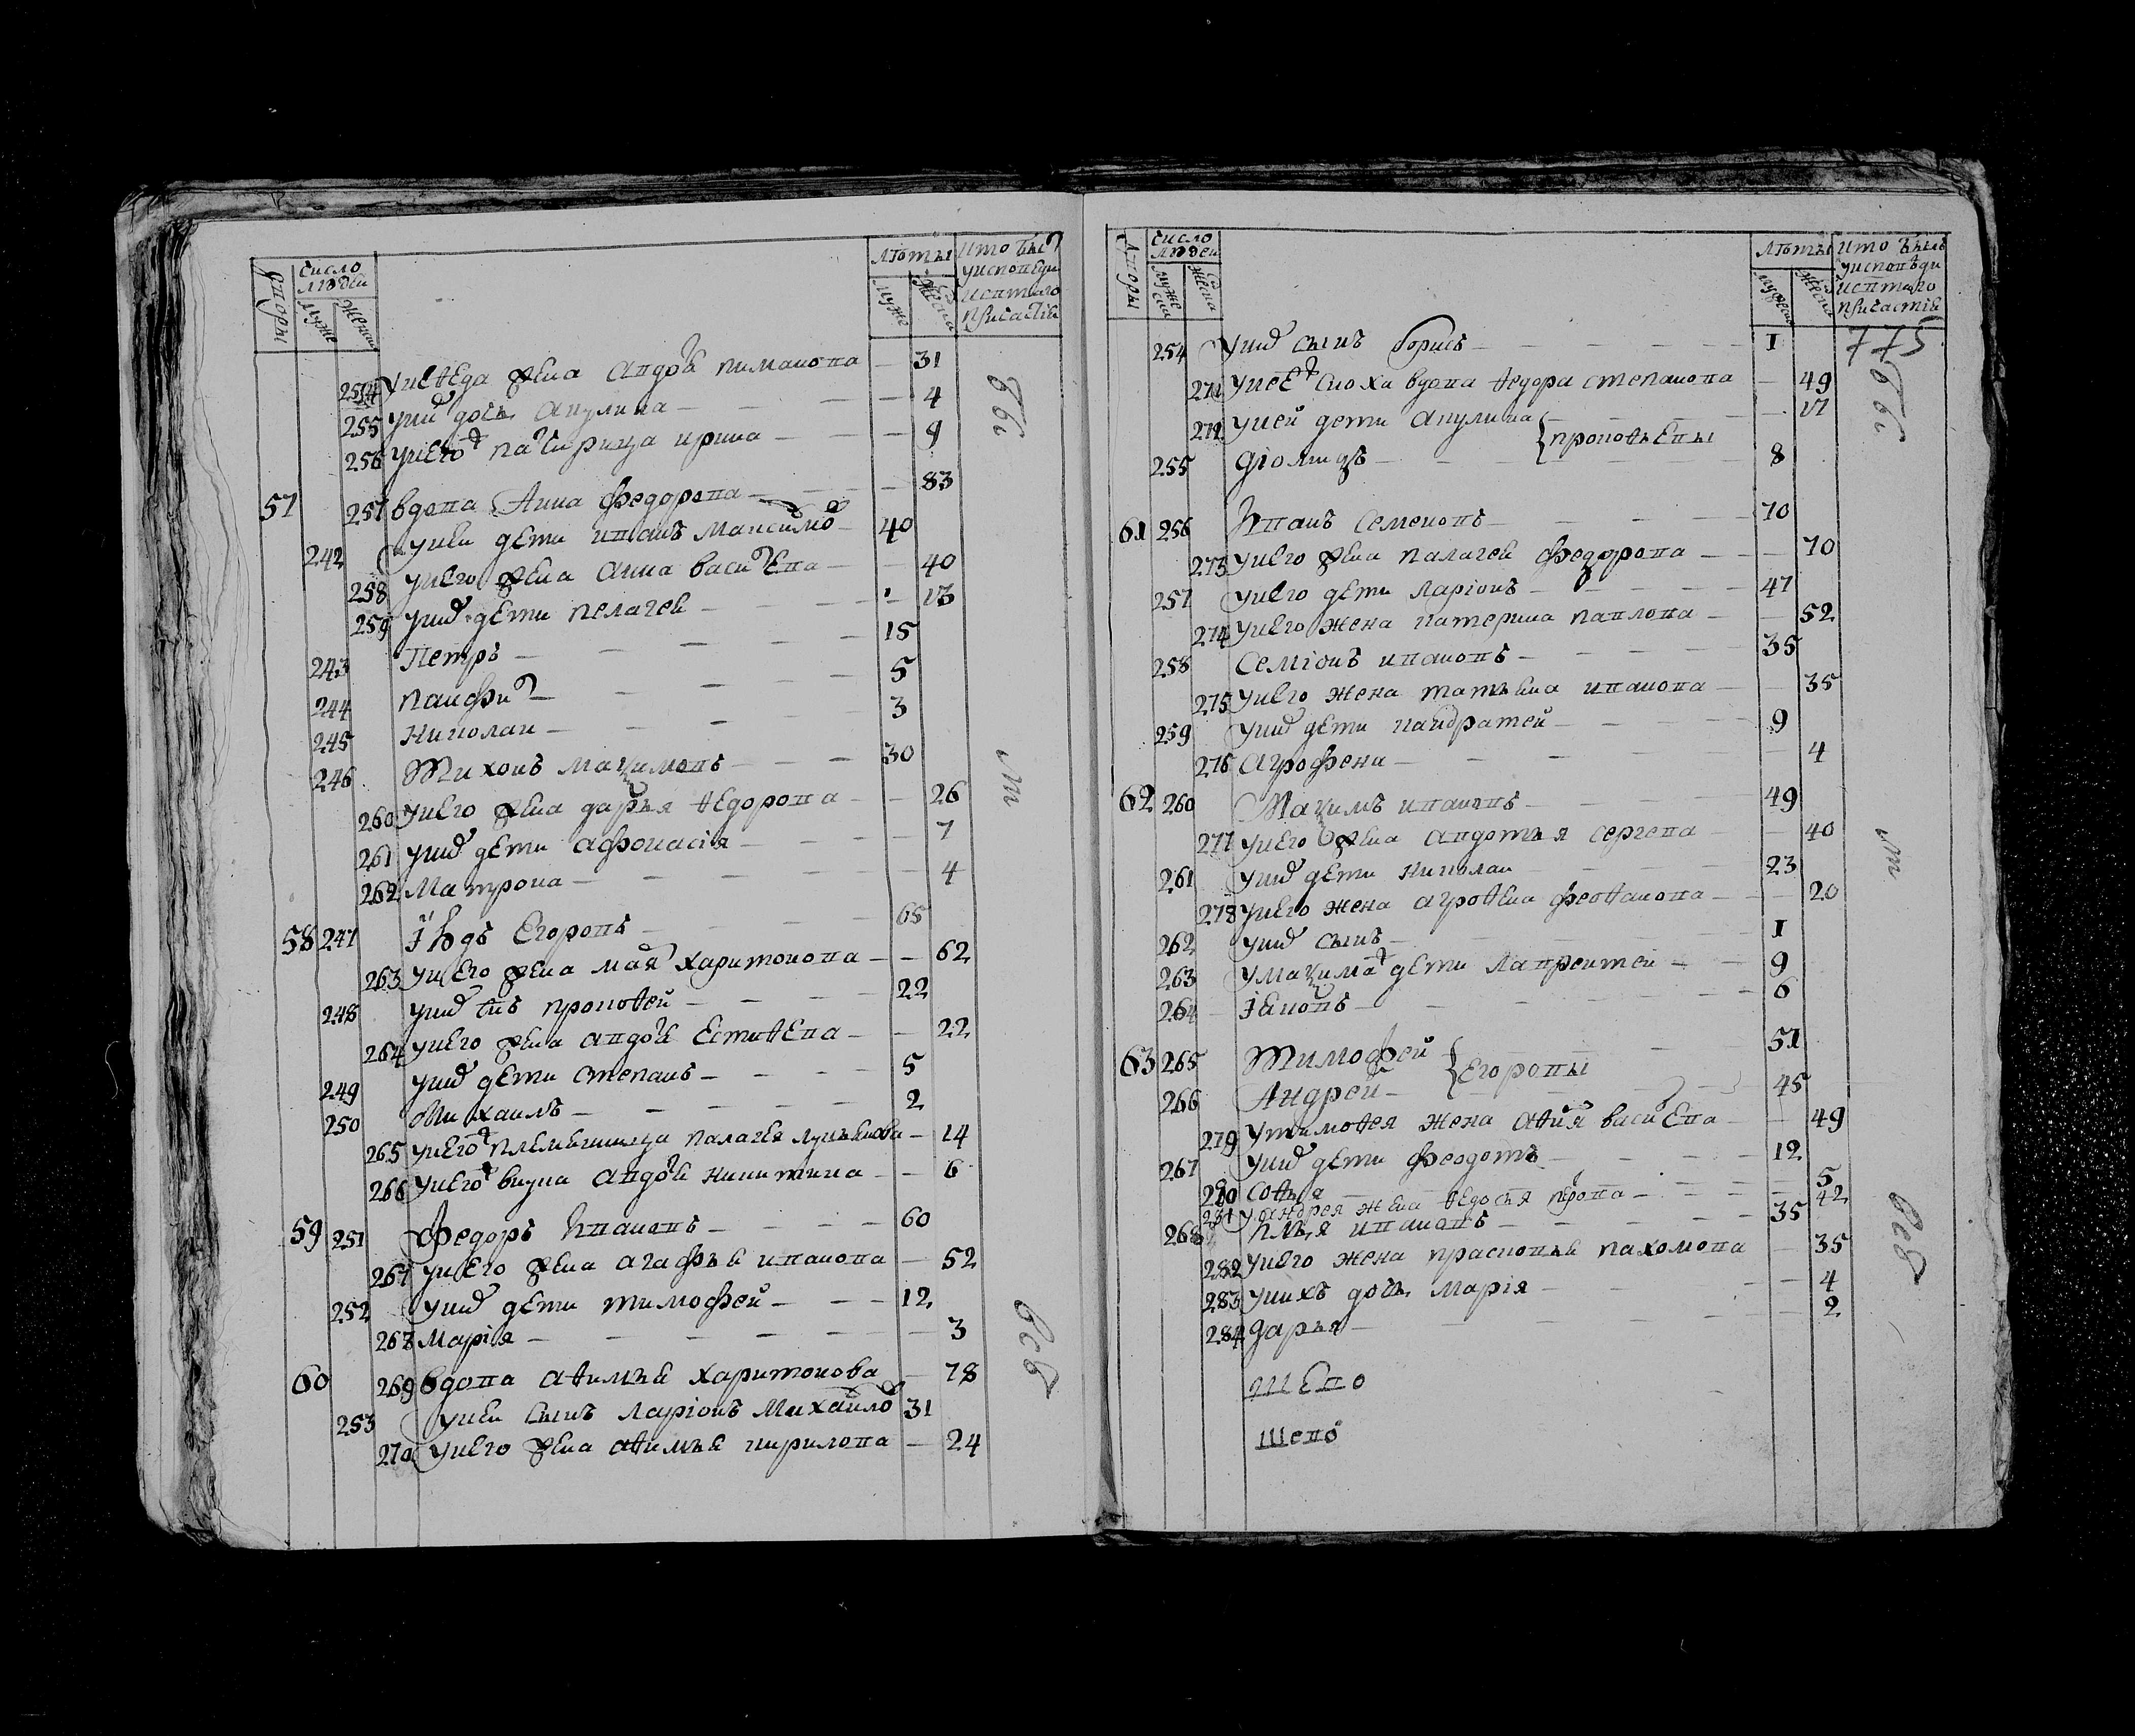 дворы число людей муже женска лѣты муже женска кто былъ уисповеди исвятаго причастія
254 унеѳеда жена авдоѣ климанова — 31
255 уних дочь акулина — 4
256 унего падчирица ирина — 9
57 257 вдова Анна федорова — 83
242 унеи дети иванъ Максимо — 40
258 унего жена анна васиева — 40
259 уних дети пелагея — 13
243 Петръ — 15
244 панфи — 5
245 николаи — 3
246 Тихонъ мазимовъ — 30
260 унего жена дарья ѳедорова — 26
261 уних дети афонасія — 7
262 Матрона — 4
58 247 Егоровъ — 65
263 унего жена маѧ харитонова — 62
248 уних снъ прокоѳей — 22
264 унего жена авдоѣ естиѳева — 22
249 уних дети степанъ — 5
250 Михаилъ — 2
265 унего племянница палагея лукьянова — 14
266 унего внука авдоѣ никитина — 6
59 251 Федоръ Ивановъ — 60
267 унего жена агафья иванова — 52
252 уних дети тимофей — 12
268 Марія — 3
60 269 вдова аѳимья харитонова — 78
253 унеи сынъ ларіонъ Михаило 31
270 унего жена аѳимья кирилова — 24
бы
ли
всѣ
дворы число людей мужеска женска лѣты мужеска женска кто былъ уисповѣди исвятаго причастія
775
254 уних сынъ борисъ — 1
271 унее сноха вдова ѳедора степанова — 49
272 уней дети акулина — 17
{прокоѳьевы
255 діомидъ — 8
61 256 Иванъ семеновъ — 70
273 унего жена палагея федорова — 70
257 унего дети ларіонъ — 47
274 унего жена катерина павлова — 52
258 семіонъ ивановъ — 35
275 унего жена татьяна иванова — 35
259 уних дети кандратей — 9
276 агрофена — 4
62 260 Мазимъ ивановъ — 49
277 унего жена авдотья сергева — 40
261 уних дети николаи — 23
278 унего жена агроѳена феоѳанова — 20
262 уних сынъ — 1
263 умазима дети лаврентеи — 9
264 іаковъ — 6
63 265 Тимофей — 51
{егоровы
266 Андрей — 45
279 утимоѳея жена васиева — 49
267 уних дети феодотъ — 12
280 соѳья — 5
281 уандрея жена ѳедосья — 42
268 илья ивановъ — 35
282 унего жена прасковья пахомова — 35
283 унихъ дочь марія — 4
284 дарья — 2
бы
ли
всѣ